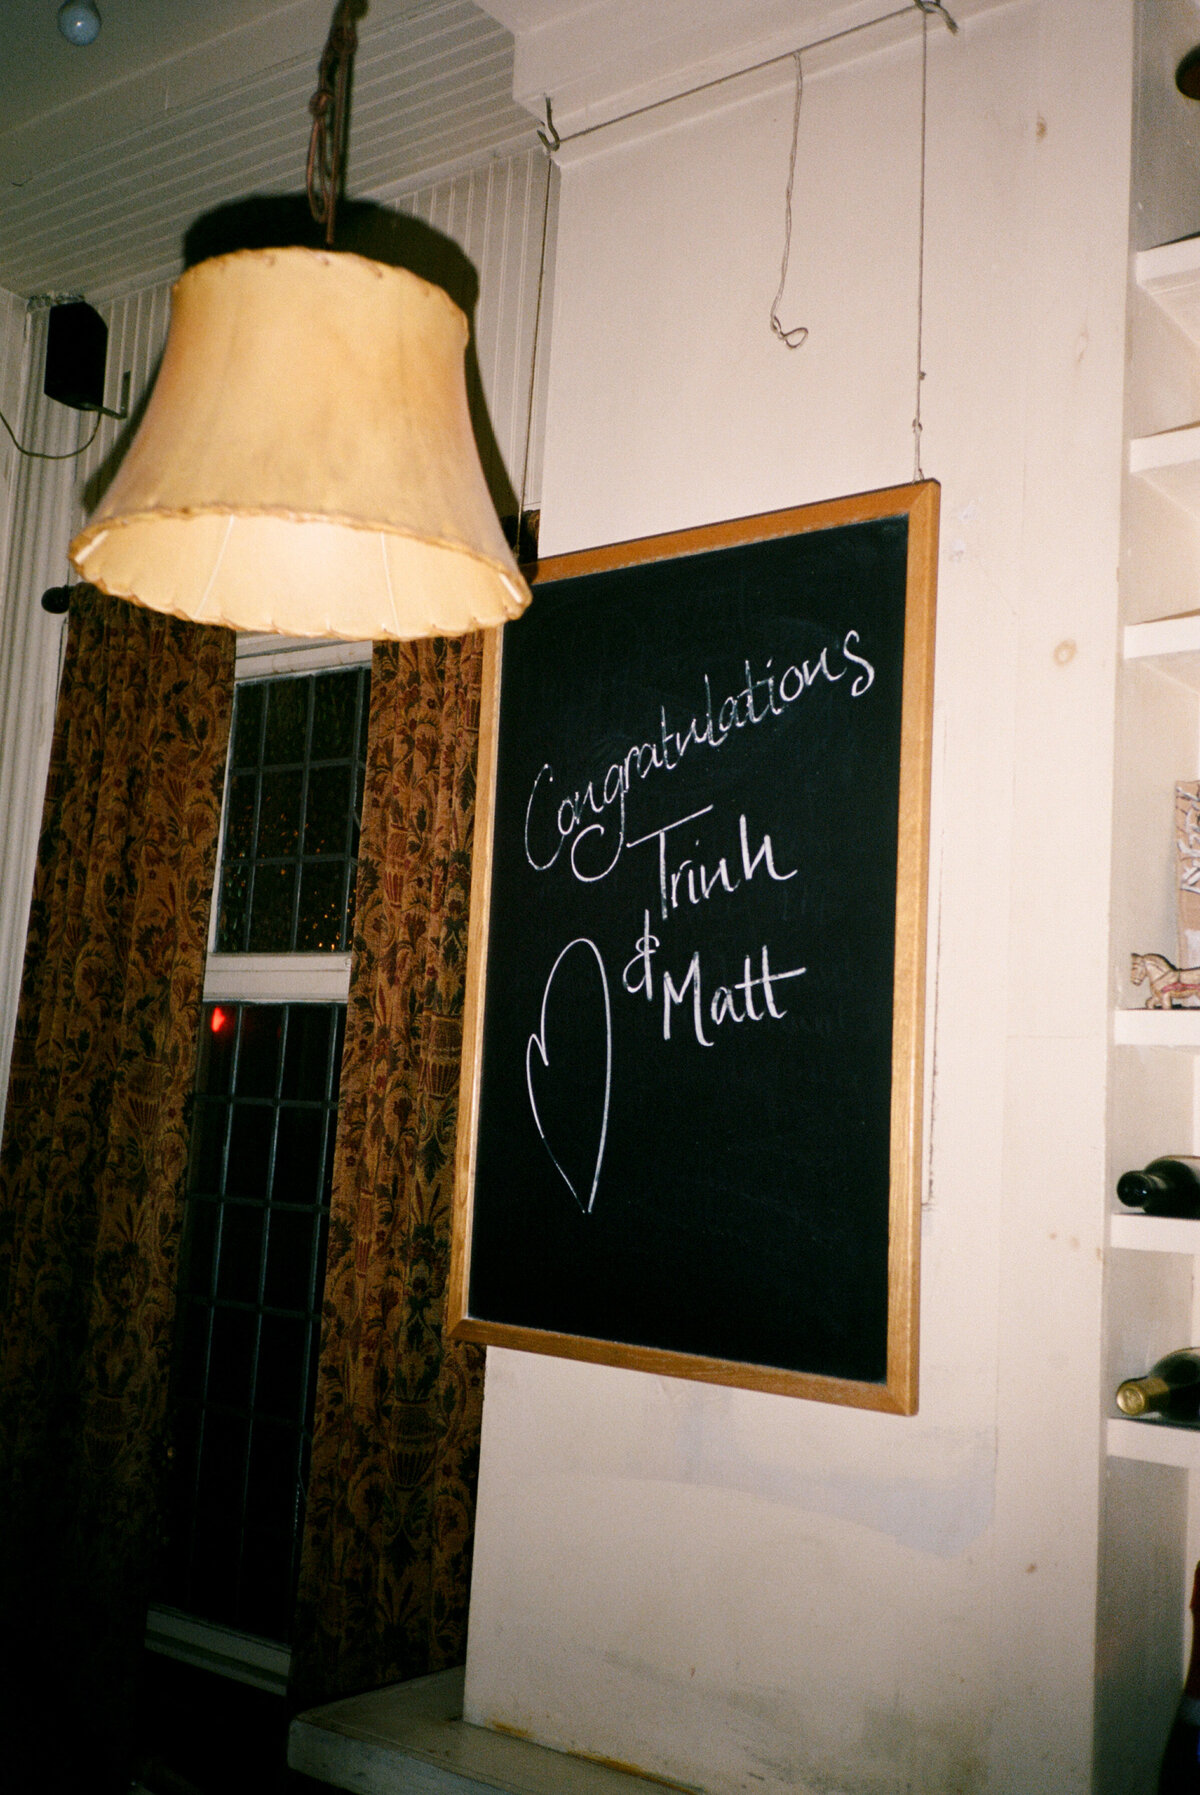 Congratulations
Trinh
&
Matt